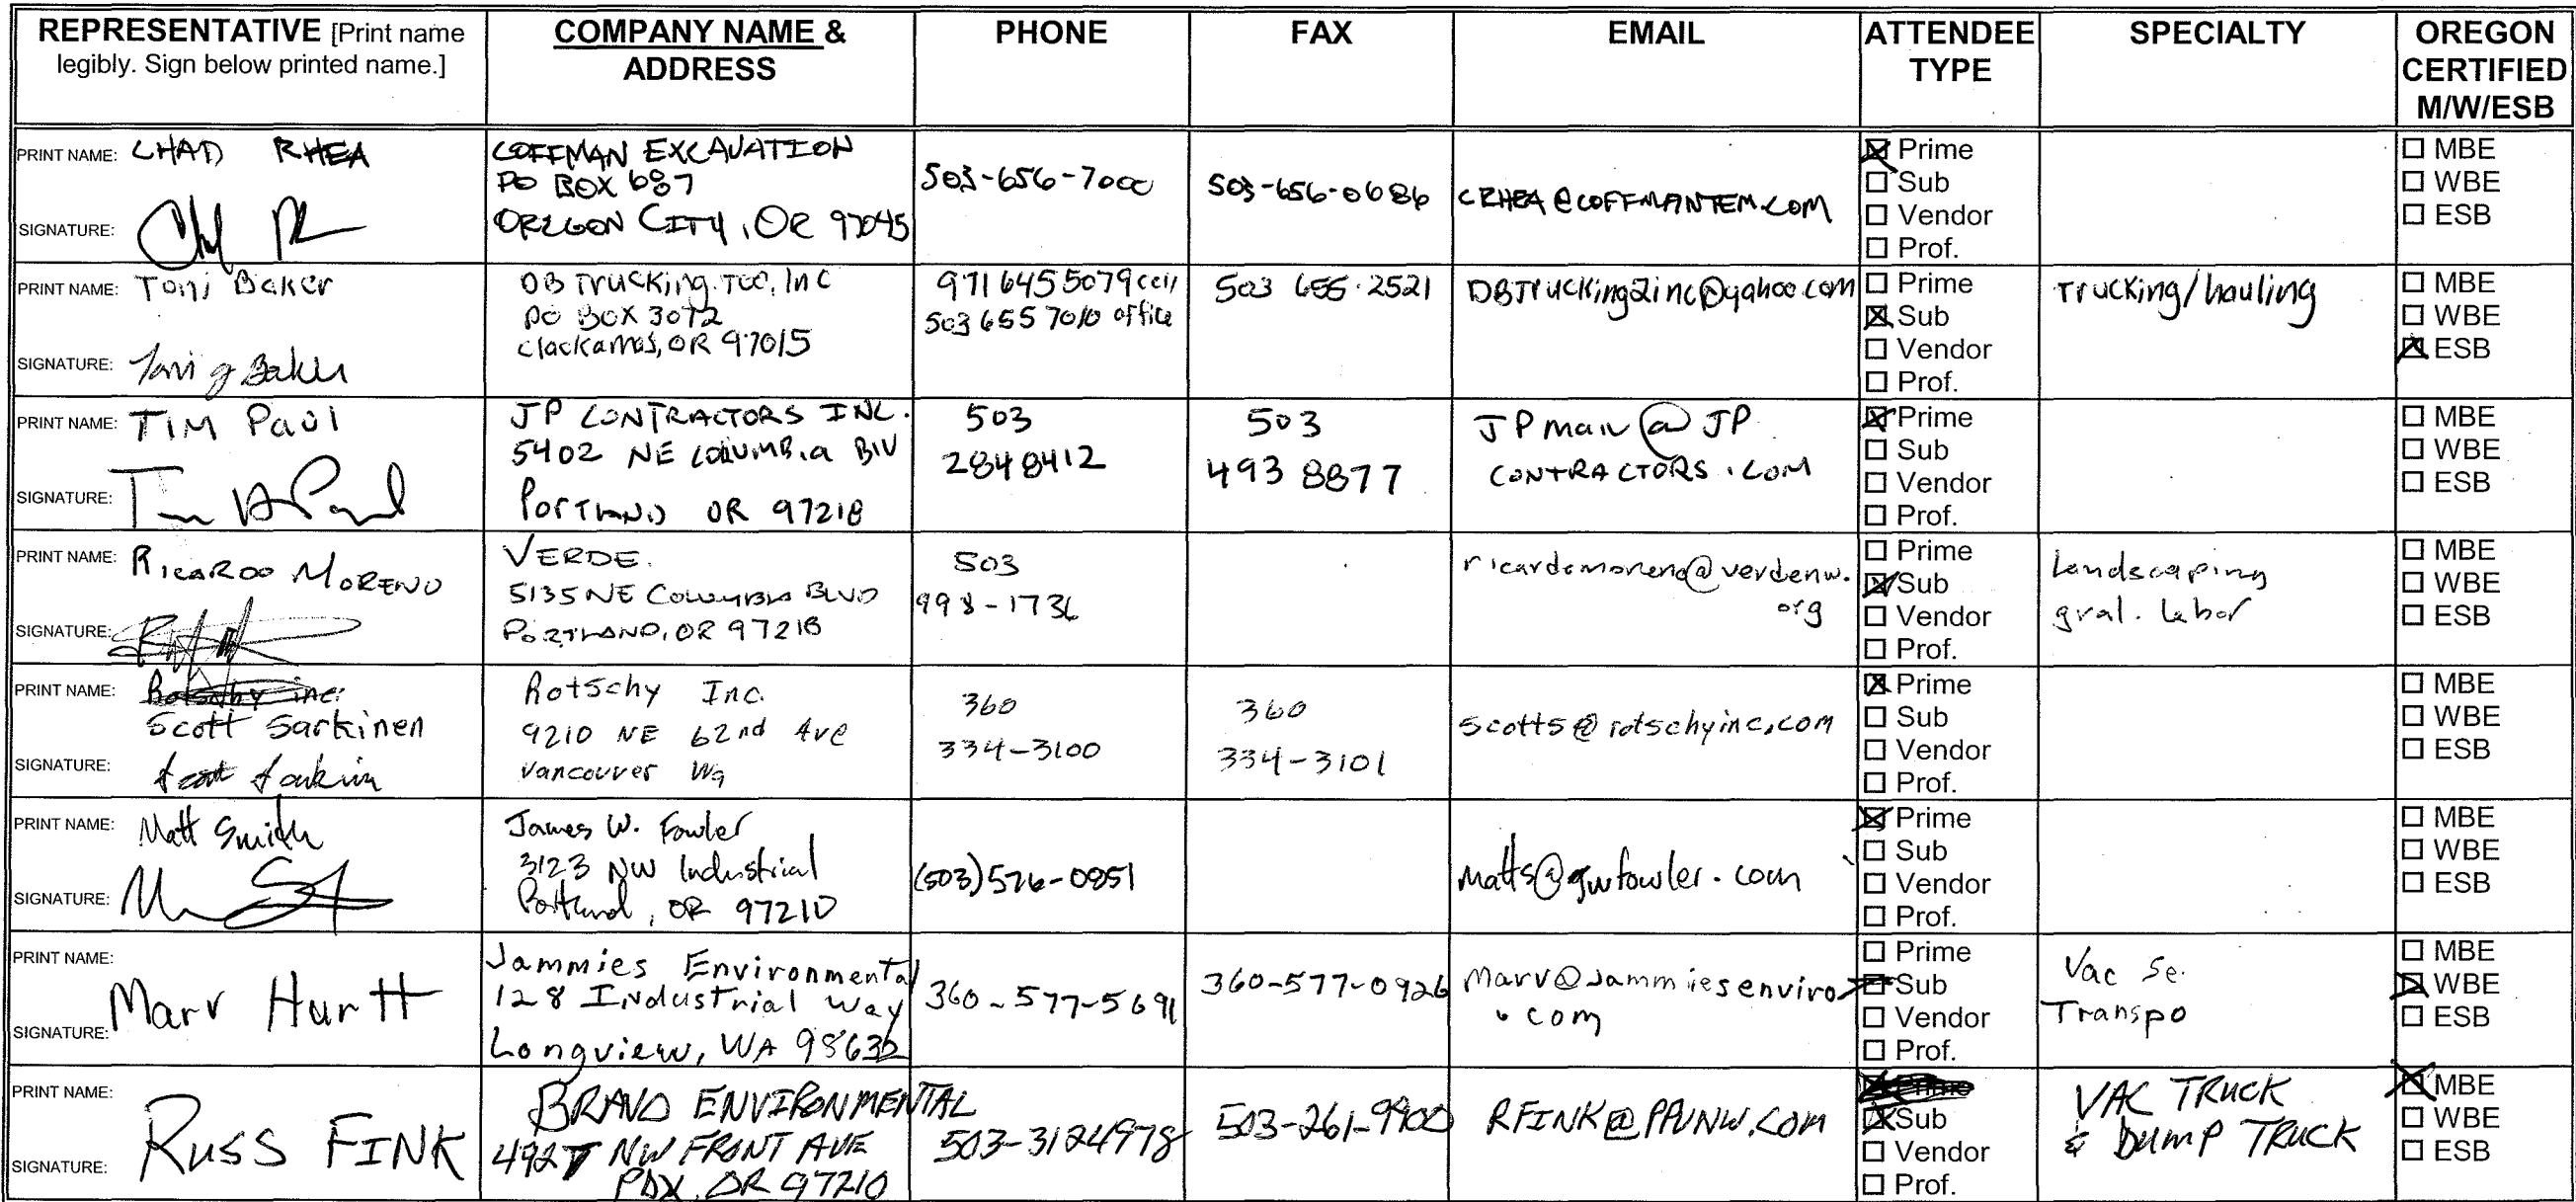 REPRESENTATIVE [Print name legibly. Sign below printed name.]
COMPANY NAME & ADDRESS
PHONE
FAX
EMAIL
ATTENDEE TYPE
SPECIALTY
OREGON CERTIFIED M/W/ESB
PRINT NAME: CHAD RHEA
SIGNATURE:
COFFMAN EXCAVATION
PO BOX 687
OREGON CITY, OR 97045
503-656-7000
503-656-0686
CRHEA@COFFMANTEM.COM
Prime
Sub
Vendor
Prof.
MBE
WBE
ESB
PRINT NAME: Toni Baker
SIGNATURE: Toni J Baker
DB Trucking Too, Inc
PO BOX 3072
Clackamas, OR 97015
971 645 5079 cell
503 655 7010 office
503 655-2521
DBTrucking2inc@yahoo.com
Prime
Sub
Vendor
Prof.
Trucking/hauling
MBE
WBE
ESB
PRINT NAME: TIM PAUL
SIGNATURE:
JP CONTRACTORS INC.
5402 NE COLUMBIA BLV
PORTLAND OR 97218
503
2848412
503
493 8877
JPmain@JP
CONTRACTORS.COM
Prime
Sub
Vendor
Prof.
MBE
WBE
ESB
PRINT NAME: RICARDO MORENO
SIGNATURE:
VERDE.
5135 NE COLUMBIA BLVD
PORTLAND, OR 97218
503
998-1736
ricardomoreno@verdenw.
org
Prime
Sub
Vendor
Prof.
landscaping
gral. labor
MBE
WBE
ESB
PRINT NAME: Rotschy inc.
Scott Sarkinen
SIGNATURE:
Rotschy Inc.
9210 NE 62nd Ave
Vancouver Wa
360
334-3100
360
334-3101
scotts@rotschyinc.com
Prime
Sub
Vendor
Prof.
MBE
WBE
ESB
PRINT NAME: Matt Smith
SIGNATURE:
James W. Fowler
3123 NW Industrial
Portland, OR 97210
(503)576-0851
matts@jwfowler.com
Prime
Sub
Vendor
Prof.
MBE
WBE
ESB
PRINT NAME:
Marv Hurtt
SIGNATURE:
Jammies Environmental
128 Industrial Way
Longview, WA 98632
360-577-5691
360-577-0926
Marv@Jammiesenviro
.com
Prime
Sub
Vendor
Prof.
Vac Se.
Transpo
MBE
WBE
ESB
PRINT NAME:
RUSS FINK
SIGNATURE:
BRAVO ENVIRONMENTAL
4927 NW FRONT AVE
PDX, OR 97210
503-3124978
503-261-9900
RFINK@PPUNW.COM
Prime
Sub
Vendor
Prof.
VAC TRUCK
& DUMP TRUCK
MBE
WBE
ESB